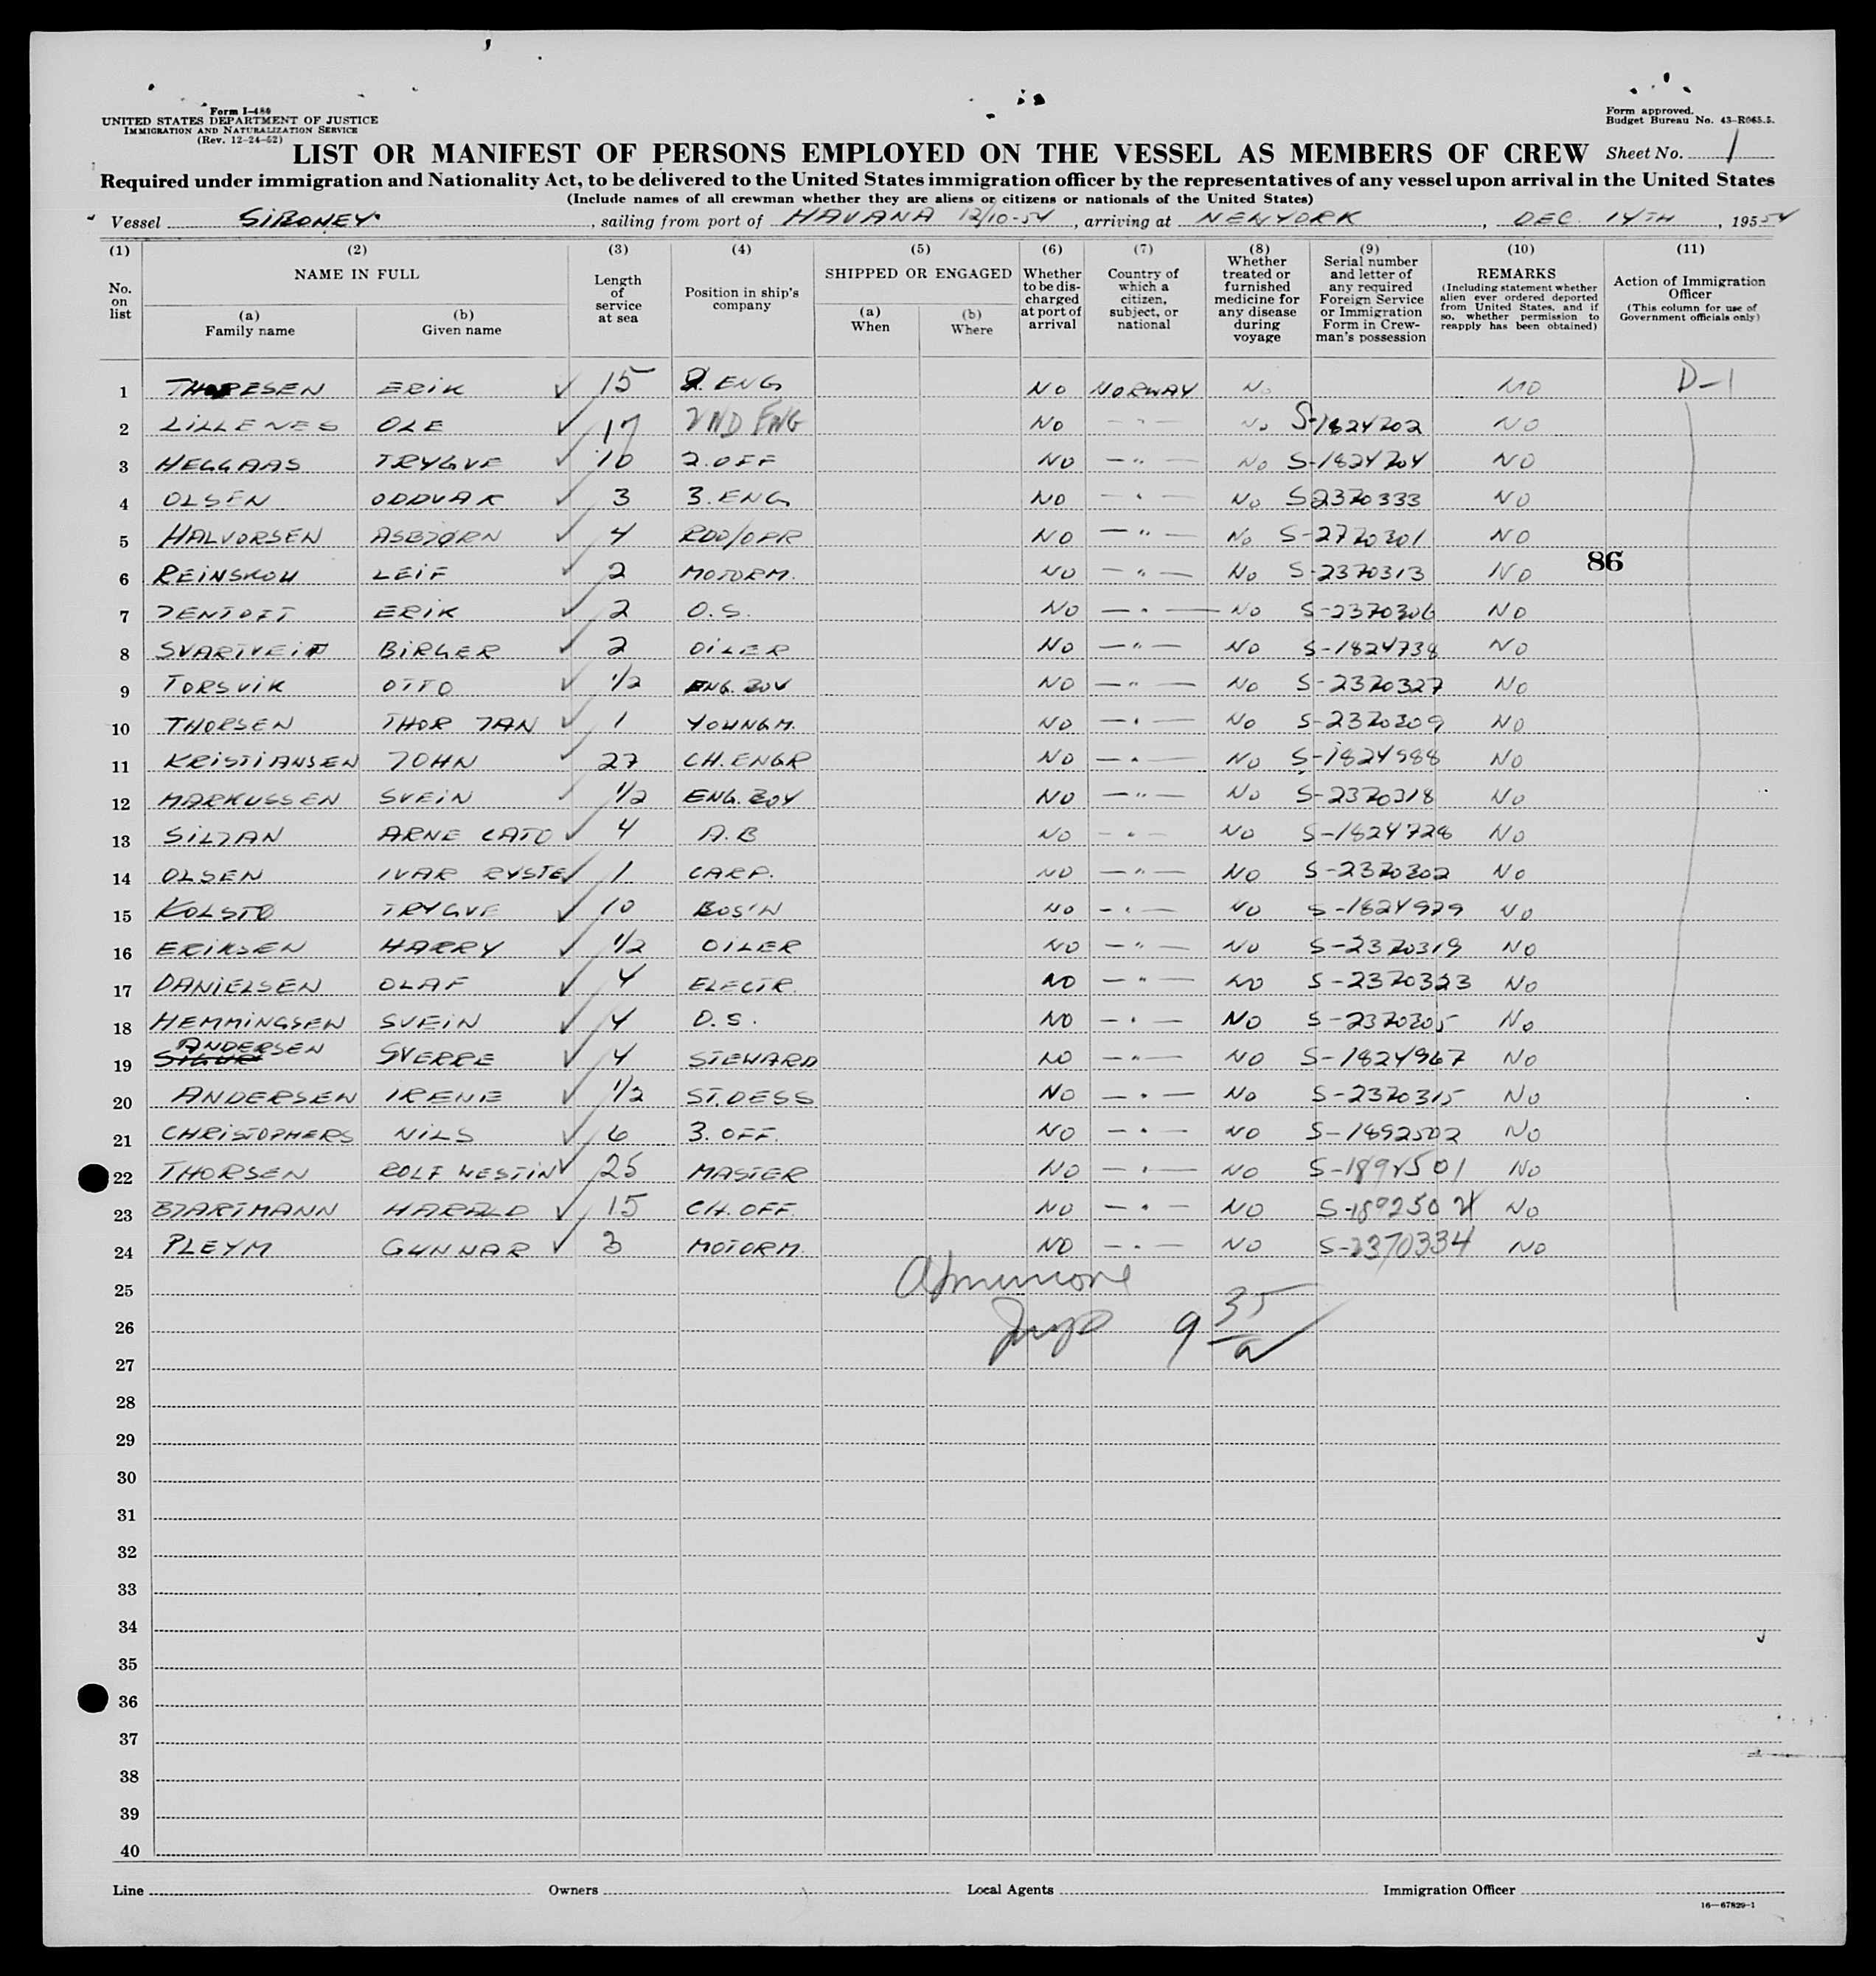 Form I-480
UNITED STATES DEPARTMENT OF JUSTICE
IMMIGRATION AND NATURALIZATION SERVICE
(Rev. 12-24-52)
Form approved.
Budget Bureau No. 43-R065.5.
LIST OR MANIFEST OF PERSONS EMPLOYED ON THE VESSEL AS MEMBERS OF CREW Sheet No. 1
Required under immigration and Nationality Act, to be delivered to the United States immigration officer by the representatives of any vessel upon arrival in the United States
(Include names of all crewman whether they are aliens or citizens or nationals of the United States)
Vessel SIBONEY, sailing from port of HAVANA 12/10-54, arriving at NEWYORK, DEC. 14TH, 19554
(1) No. on list
(2) NAME IN FULL
(a) Family name
(b) Given name
(3) Length of service at sea
(4) Position in ship's company
(5) SHIPPED OR ENGAGED
(a) When
(b) Where
(6) Whether to be discharged at port of arrival
(7) Country of which a citizen, subject, or national
(8) Whether treated or furnished medicine for any disease during voyage
(9) Serial number and letter of any required Foreign Service or Immigration Form in Crewman's possession
(10) REMARKS (Including statement whether alien ever ordered deported from United States, and if so, whether permission to reapply has been obtained)
(11) Action of Immigration Officer (This column for use of Government officials only)
1 THORESEN ERIK ✓ 15 2. ENG NO NORWAY NO NO D-1
2 LILLENES OLE ✓ 17 2ND ENG NO — " — NO S-1824202 NO
3 HEGGAAS TRYGVE ✓ 10 2. OFF NO — " — NO S-1824204 NO
4 OLSEN ODDVAR ✓ 3 3. ENG NO — " — NO S2370333 NO
5 HALVORSEN ASBJØRN ✓ 4 RDO/OPR NO — " — NO S-2770301 NO
86
6 REINSKOU LEIF ✓ 2 MOTORM. NO — " — NO S-2370313 NO
7 JENTOFT ERIK ✓ 2 O.S. NO — " — NO S-2370306 NO
8 SVARTVEIT BIRGER ✓ 2 OILER NO — " — NO S-1824738 NO
9 TORSVIK OTTO ✓ 1/2 ENG. BOY NO — " — NO S-2370327 NO
10 THORSEN THOR JAN ✓ 1 YOUNGM. NO — " — NO S-2370309 NO
11 KRISTIANSEN JOHN ✓ 27 CH. ENGR NO — " — NO S-1824988 NO
12 MARKUSSEN SVEIN ✓ 1/2 ENG. BOY NO — " — NO S-2370318 NO
13 SILJAN ARNE CATO ✓ 4 A.B NO — " — NO S-1824728 NO
14 OLSEN IVAR RYSTE ✓ 1 CARP. NO — " — NO S-2370302 NO
15 KOLSTØ TRYGVE ✓ 10 BOS'N NO — " — NO S-1824979 NO
16 ERIKSEN HARRY ✓ 1/2 OILER NO — " — NO S-2370319 NO
17 DANIELSEN OLAF ✓ 4 ELECTR. NO — " — NO S-2370323 NO
18 HEMMINGSEN SVEIN ✓ 4 O.S. NO — " — NO S-2370305 NO
19 ANDERSEN SVERRE ✓ 4 STEWARD NO — " — NO S-1824967 NO
20 ANDERSEN IRENE ✓ 1/2 ST.DESS NO — " — NO S-2370315 NO
21 CHRISTOPHERS NILS ✓ 6 3. OFF. NO — " — NO S-1892502 NO
22 THORSEN ROLF WESTIN ✓ 25 MASTER NO — " — NO S-1892501 NO
23 BJARTMANN HARALD ✓ 15 CH. OFF. NO — " — NO S-189250 NO
24 PLEYM GUNNAR ✓ 3 MOTORM. NO — " — NO S-2370334 NO
25
26 9 35/a
27
28
29
30
31
32
33
34
35
36
37
38
39
40
Line Owners Local Agents Immigration Officer
16—67829-1